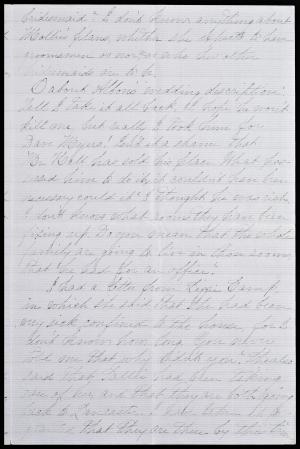 bridesmaid? I don't know anything about
Mollie's plans, whether she expects to have
groomsmen or nor who the other
bridesmaids are to be.
O about wedding description!
Well I take it all back, & hope he won't
kill me, but really I took him for
Dan Isn't it a shame that
Dr. Hall has sold his place. What
him to do it, it couldn't have been
necessary could it? I thought he was rich.
I don't know what rooms they have been
fixing up. Do you mean that the whole
family are going to live in those rooms,
that he had for an office?
I had a letter from Camp,
in which she said that she had been
very sick, confined to the house, for I
don't know how long. You never
told me that, why didn't you? She also
said that had been taking
care of her, and that they are both going
back to Lancaster. I
that they are there by this time